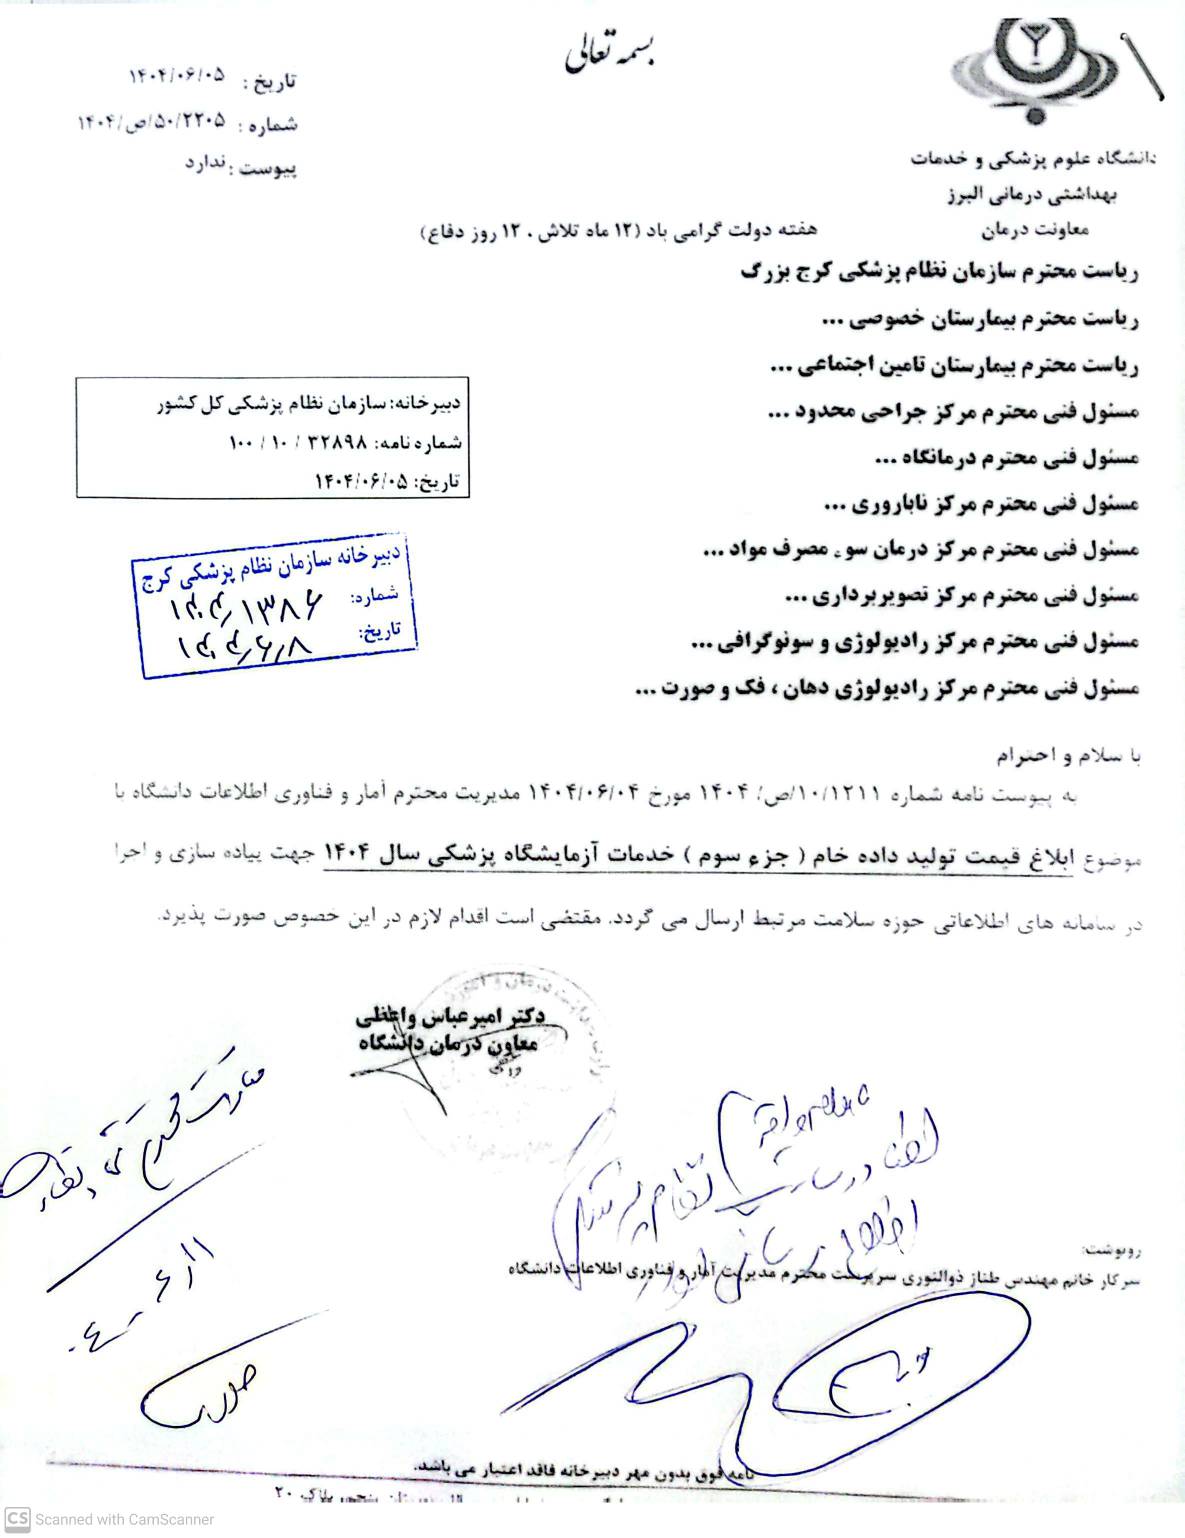 بسمه تعالی
تاریخ : ۱۴۰۴/۰۶/۰۵
شماره : ۵۰/۲۲۰۵/ص/۱۴۰۴
پیوست : ندارد
دانشگاه علوم پزشکی و خدمات
بهداشتی درمانی البرز
معاونت درمان
هفته دولت گرامی باد (۱۲ ماه تلاش ، ۱۲ روز دفاع)
ریاست محترم سازمان نظام پزشکی کرج بزرگ
ریاست محترم بیمارستان خصوصی ...
ریاست محترم بیمارستان تامین اجتماعی ...
مسئول فنی محترم مرکز جراحی محدود ...
مسئول فنی محترم درمانگاه ...
مسئول فنی محترم مرکز ناباروری ...
مسئول فنی محترم مرکز درمان سوء مصرف مواد ...
مسئول فنی محترم مرکز تصویربرداری ...
مسئول فنی محترم مرکز رادیولوژی و سونوگرافی ...
مسئول فنی محترم مرکز رادیولوژی دهان ، فک و صورت ...
دبیرخانه: سازمان نظام پزشکی کل کشور
شماره نامه: ۳۲۸۹۸ / ۱۰ / ۱۰۰
تاریخ: ۱۴۰۴/۰۶/۰۵
دبیرخانه سازمان نظام پزشکی کرج
شماره: ۱۴۰۴/۱۳۸۶
تاریخ: ۱۴۰۴/۶/۸
با سلام و احترام
به پیوست نامه شماره ۱۰/۱۲۱۱/ص/ ۱۴۰۴ مورخ ۱۴۰۴/۰۶/۰۴ مدیریت محترم آمار و فناوری اطلاعات دانشگاه با
موضوع ابلاغ قیمت تولید داده خام ( جزء سوم ) خدمات آزمایشگاه پزشکی سال ۱۴۰۴ جهت پیاده سازی و اجرا
در سامانه های اطلاعاتی حوزه سلامت مرتبط ارسال می گردد. مقتضی است اقدام لازم در این خصوص صورت پذیرد.
دکتر امیرعباس واعظی
معاون درمان دانشگاه
لطفا در سایت نظام پزشکی
اطلاع رسانی شود
رونوشت:
سرکار خانم مهندس طناز ذوالنوری سرپرست محترم مدیریت آمار و فناوری اطلاعات دانشگاه
نامه فوق بدون مهر دبیرخانه فاقد اعتبار می باشد.
پلاک ۲۰
CS Scanned with CamScanner